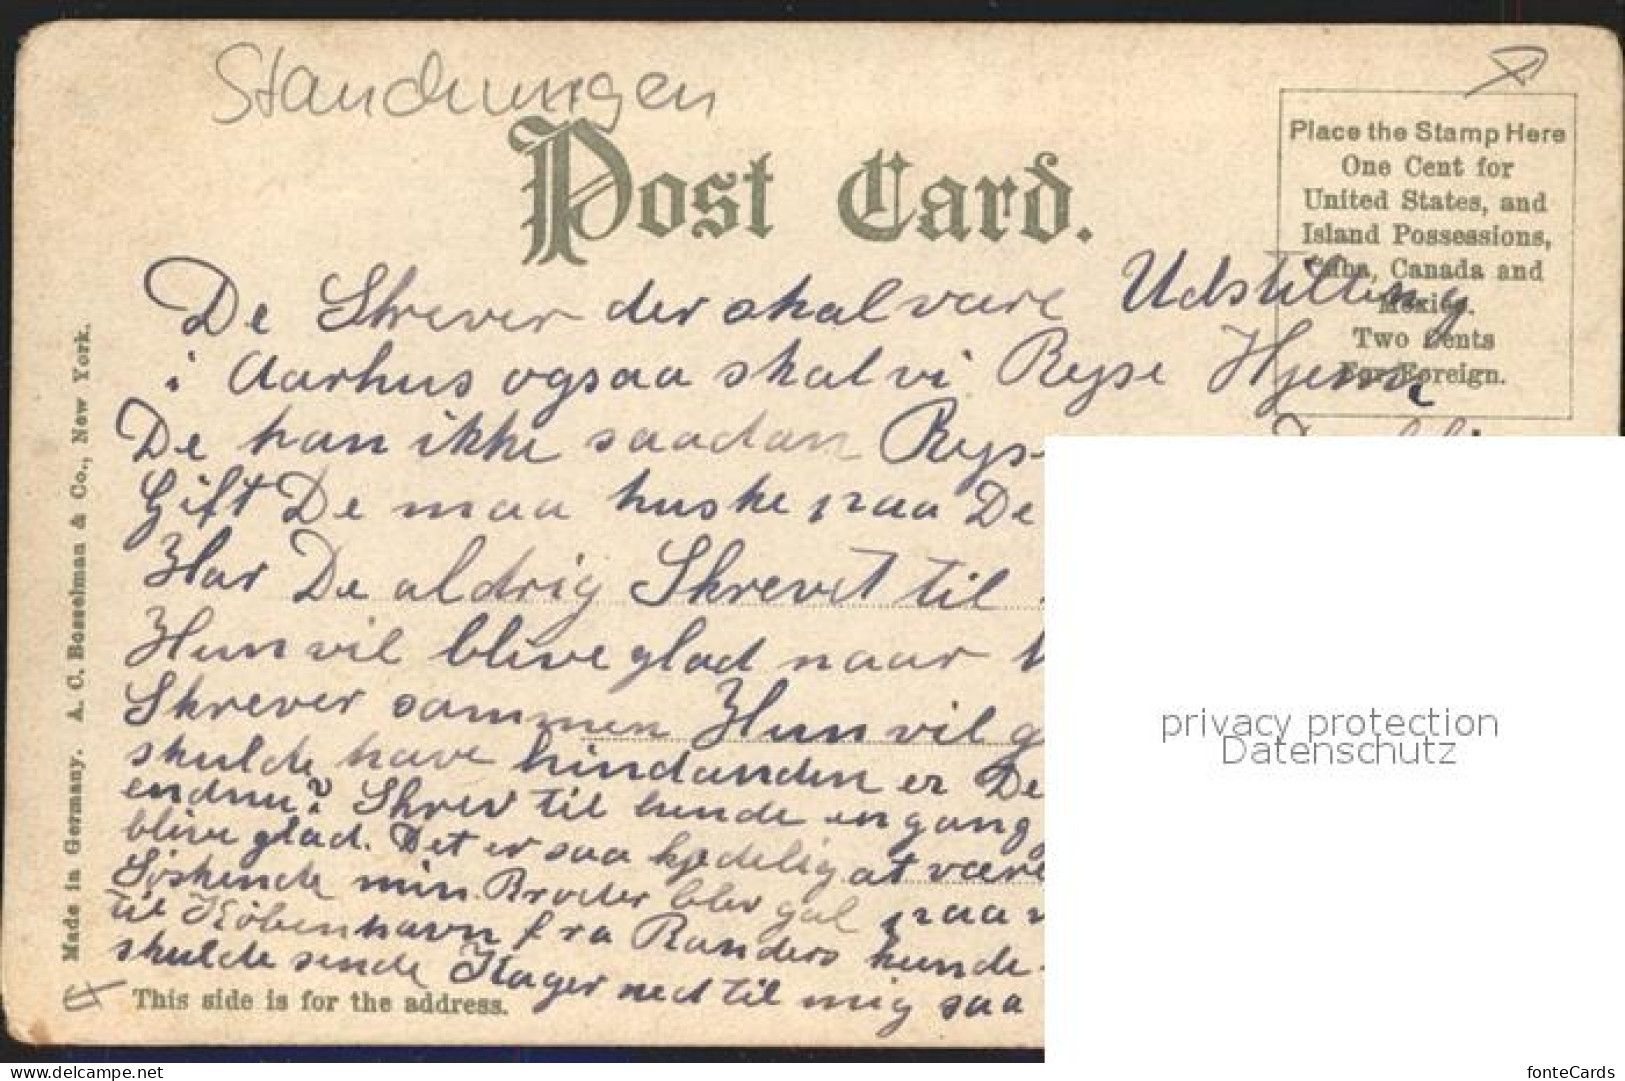 Standrungen
Post Card.
Place the Stamp Here
One Cent for
United States, and
Island Possessions,
Cuba, Canada and
Mexico.
Two Cents
For Foreign.
De Skrever der skal være Udstilling
i Aarhus ogsaa skal vi Rejse Hjem
De kan ikke saadan Rejse
Gift De maa huske paa De
Har De aldrig Skrevet til
Hun vil blive glad naar
Skrever sammen Hun vil
skulde have hindanden er De
endnu? Skrev til hende en gang
blive glad. Det er saa kjedelig at være
Søskende min Broder blev gal paa
til København fra Randers hende
skulde sende Kager ned til mig saa
This side is for the address.
Made in Germany. A. C. Bosselman & Co., New York.
privacy protection
Datenschutz
www.delcampe.net
fonteCards